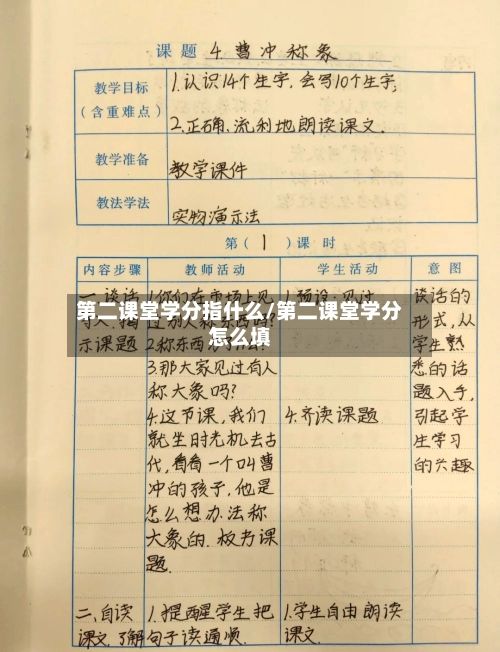 课题 4.曹冲称象
教学目标
(含重难点)
1.认识14个生字,会写10个生字;
2.正确、流利地朗读课文.
教学准备
教学课件
教法学法
实物演示法
第(1)课时
内容步骤 教师活动 学生活动 意图
一、谈话
示课题
2.称东西
3.那大家见过有人
称大象吗?
4.这节课,我们
就坐时光机去古
代,看看一个叫曹
冲的孩子,他是
怎么想办法称
大象的.板书课
题.
4.齐读课题
谈话的
形式,从
学生熟
悉的话
题入手,
引起学
生学习
的兴趣
第二课堂学分指什么/第二课堂学分
怎么填
二、自读
课文.了解
1.提醒学生把
句子读通顺.
1.学生自由朗读
课文.